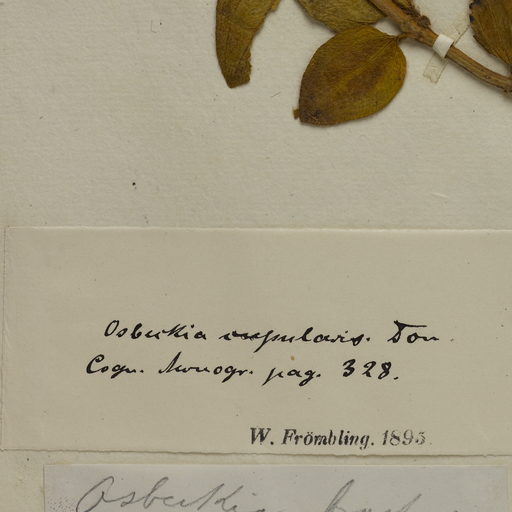 Osbeckia cupularis. Don.
Cogn. Monogr. pag. 328.
W. Frömbling. 1895.
Osbeckia